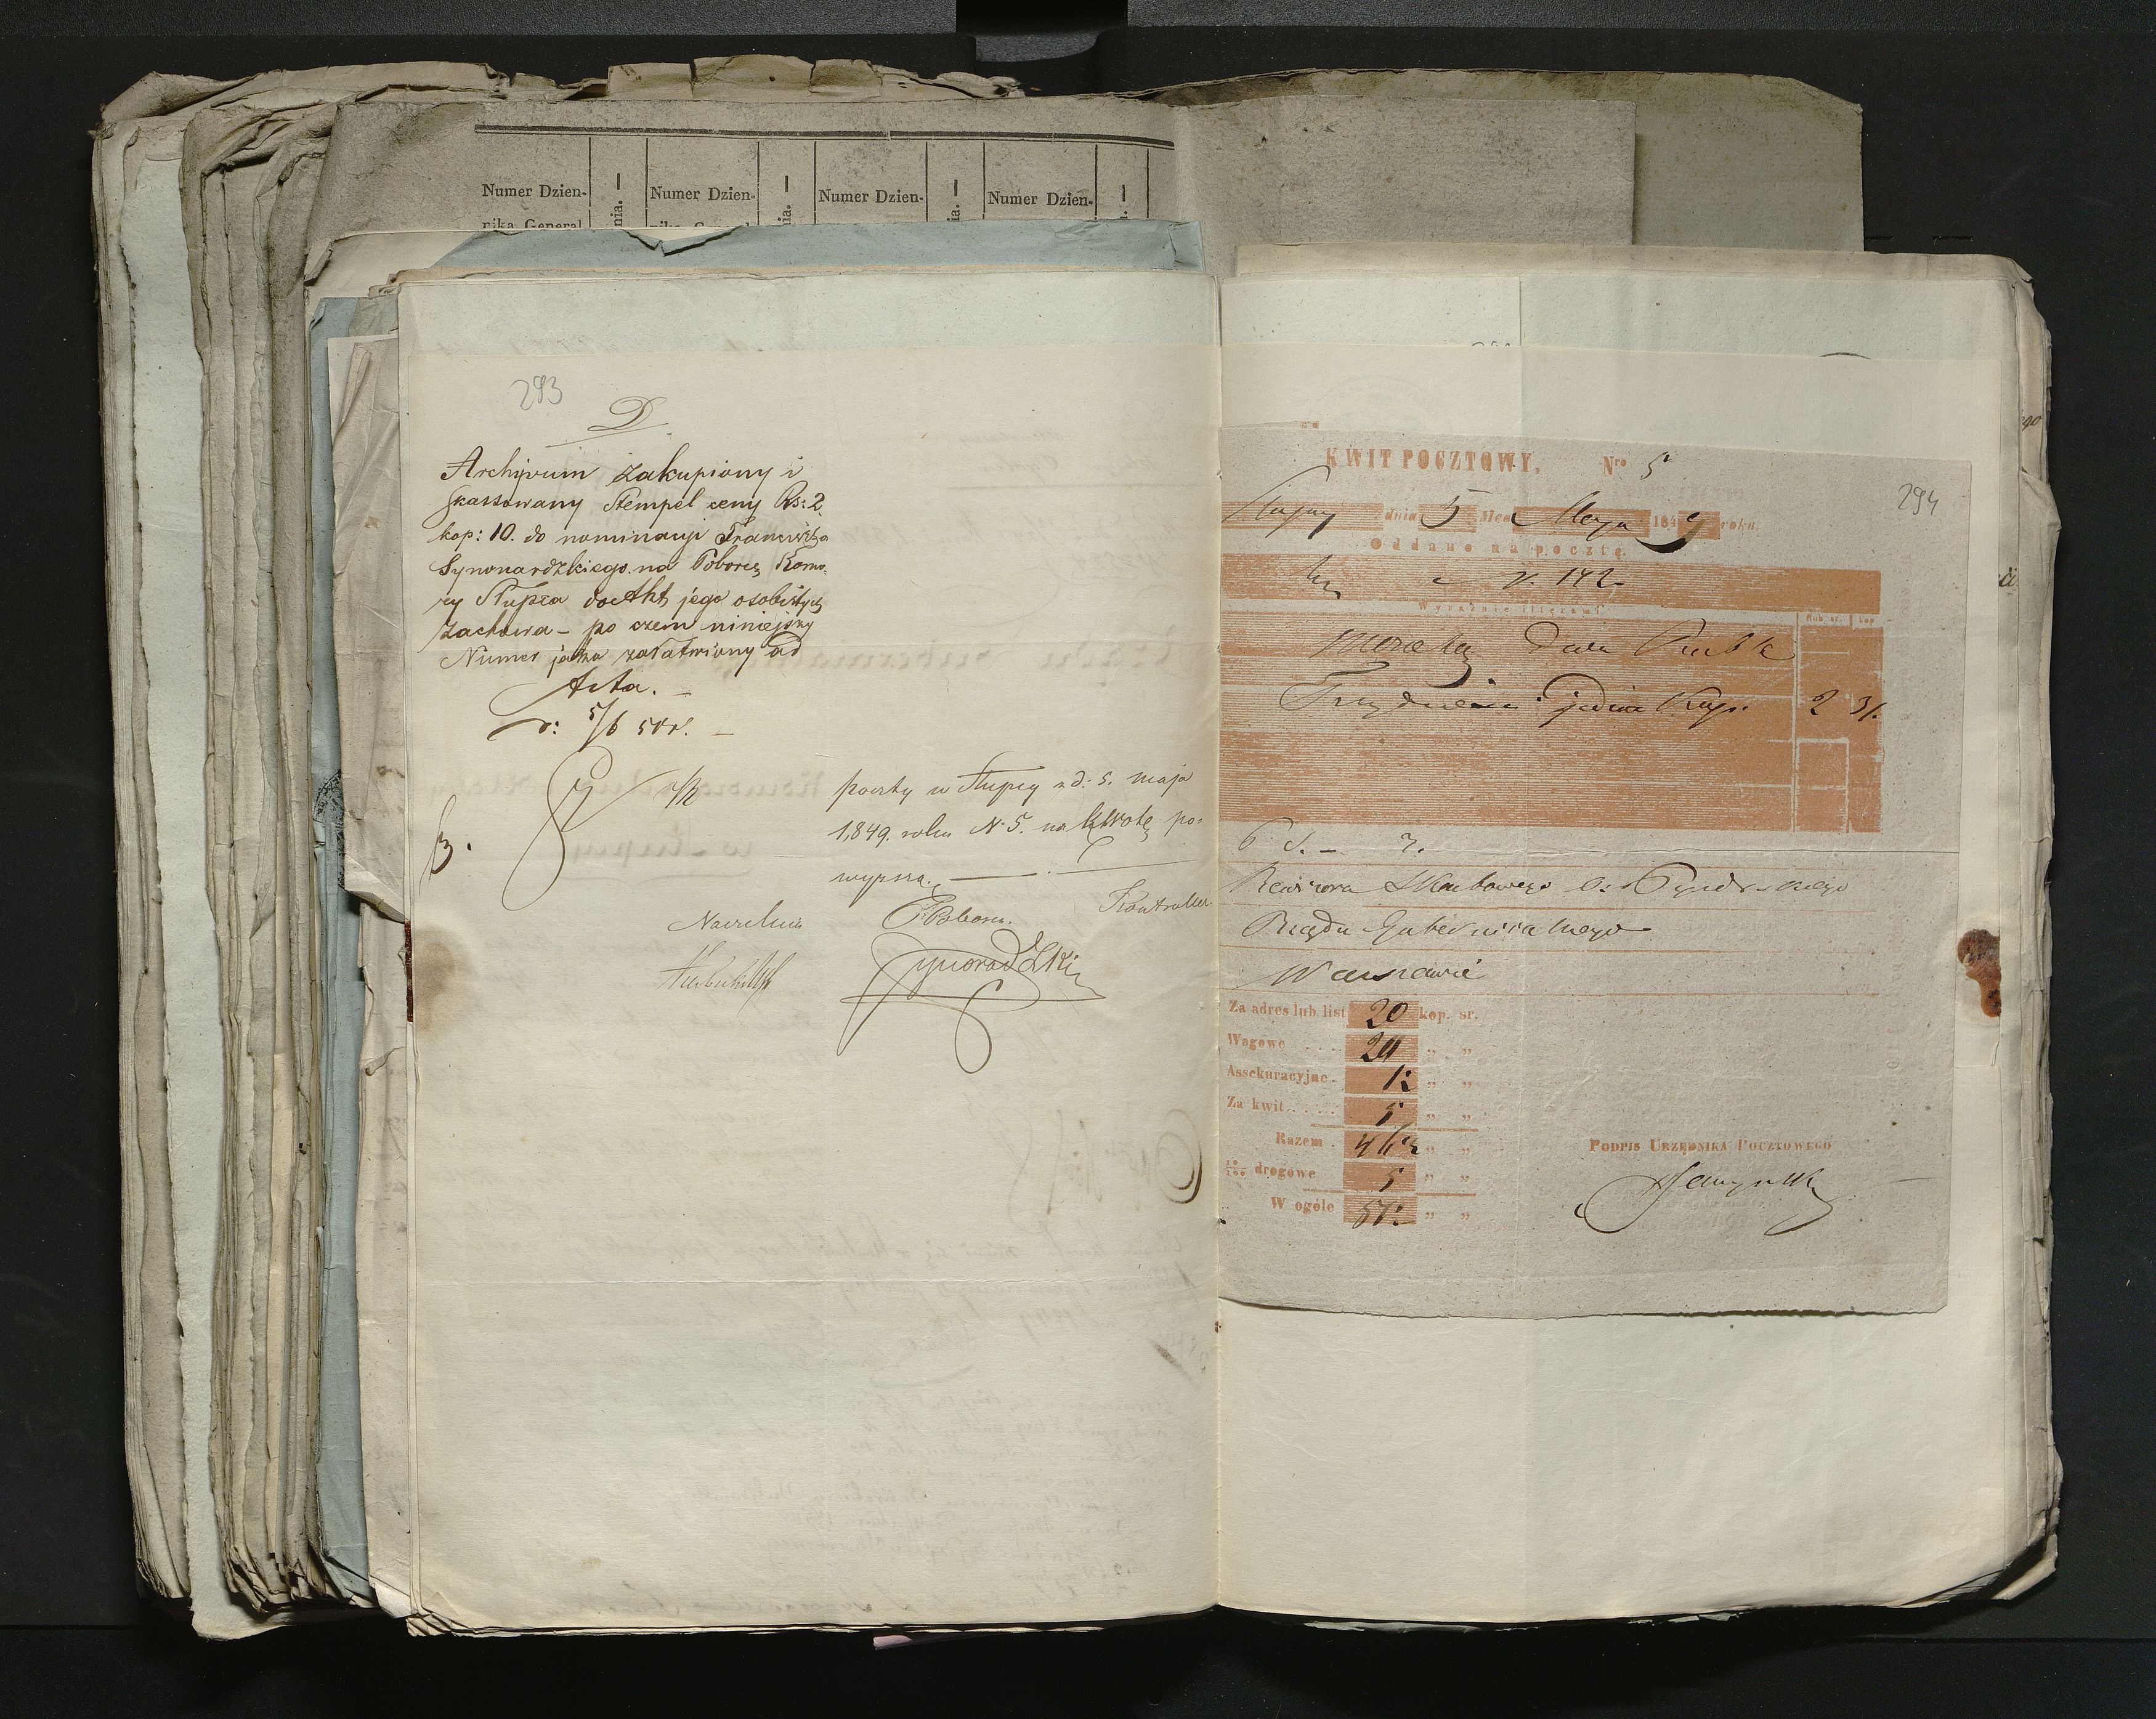 Numer Dzien- Numer Dzien- Numer Dzien- Numer Dzien-
nika General
293
D
Archiwum zakupiony i
skassowany Stempel ceny Rs: 2.
kop: 10. do nominacyi Franciszka
Synoradzkiego na Poborcę Komo-
ry Słupca do Akt jego osobistych
zachowa – po czem niniejszy
Numer jako załatwiony ad
Acta.
d: 5/6 50 r.
poczty w Słupcy z d: 5. maja
1849. roku N. 5. na kwotę po-
wyższą.
Naczelnik Poborca Kontroller
Synoradzki
294
KWIT POCZTOWY, Nro 5
Słupcy dnia 5 Mca Maja 1849 roku.
Oddano na pocztę
N. 142
Wyraźnie literami
Rub. sr. kop.
monetą dwa Ruble
Trzydzieści jeden Kop. 2 31.
Rewizora Skarbowego O. Pyzdrskiego
Rządu Gubernialnego
Warszawie
Za adres lub list 20 kop. sr.
Wagowe . . . . „ „
Assekuracyjne . „ „
Za kwit . . . . . 5 „ „
Razem . „ „
10/100 drogowe 5 „ „
W ogóle „ „
PODPIS URZĘDNIKA POCZTOWEGO